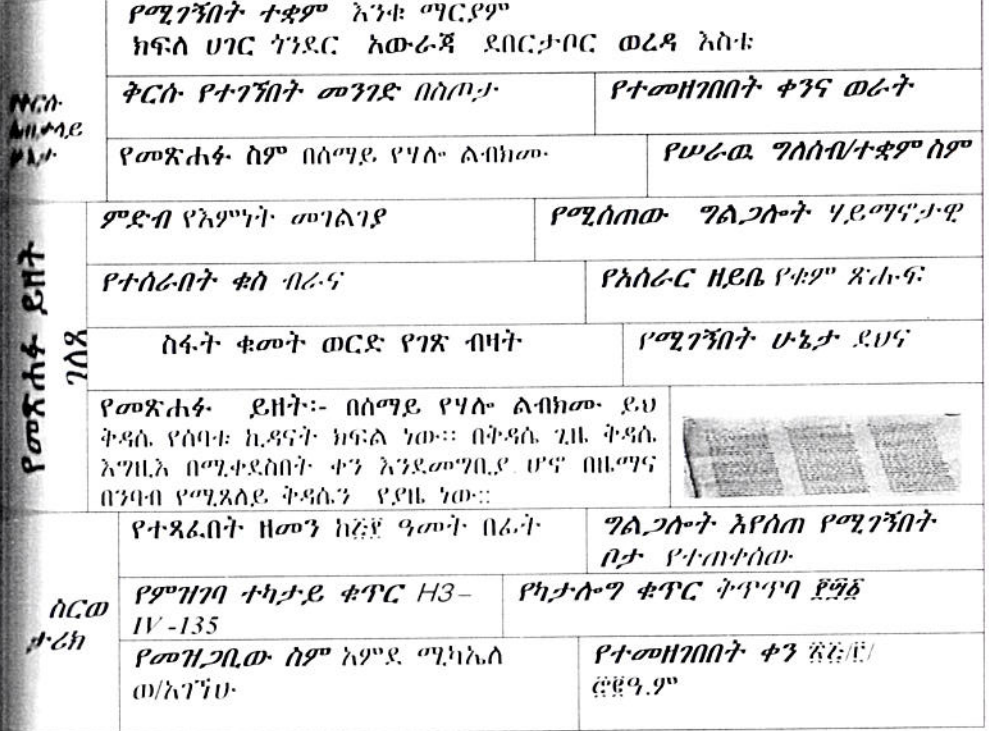 የሚገኝበት ተቋም እንቁ ማርያም
ክፍለ ሀገር ጎንደር አውራጃ ደበርታቦር ወረዳ እስቴ
ቅርሱ የተገኘበት መንገድ በስጦታ
የተመዘገበበት ቀንና ወራት
የመጽሐፉ ስም በሰማይ የሃሎ ልብክሙ
የሠራዉ ግለሰብ/ተቋም ስም
የመጽሐፉ ይዘት
ገለጻ
ምድብ የእምነት መገልገያ
የሚሰጠው ግልጋሎት ሃይማኖታዊ
የተሰራበት ቁስ ብራና
የአሰራር ዘይቤ የቁም ጽሑፍ
ስፋት ቁመት ወርድ የገጽ ብዛት
የሚገኝበት ሁኔታ ደህና
የመጽሐፉ ይዘት፡- በሰማይ የሃሎ ልብክሙ ይህ
ቅዳሴ የሰባቱ ኪዳናት ክፍል ነው፡፡ በቅዳሴ ጊዜ ቅዳሴ
እግዚእ በሚቀደስበት ቀን እንደመግቢያ ሆኖ በዜማና
በንባብ የሚጸለይ ቅዳሴን የያዜ ነው፡፡
ስርወ
ታሪክ
የተጻፈበት ዘመን ዓመት በፊት
ግልጋሎት እየሰጠ የሚገኝበት
ቦታ የተጠቀሰው
የምዝገባ ተከታይ ቁጥር H3–
IV -135
የካታሎግ ቁጥር ቅጥጥባ
የመዝጋቢው ስም አምደ ሚካኤለ
ወ/አገኘሁ
የተመዘገበበት ቀን
ዓ.ም